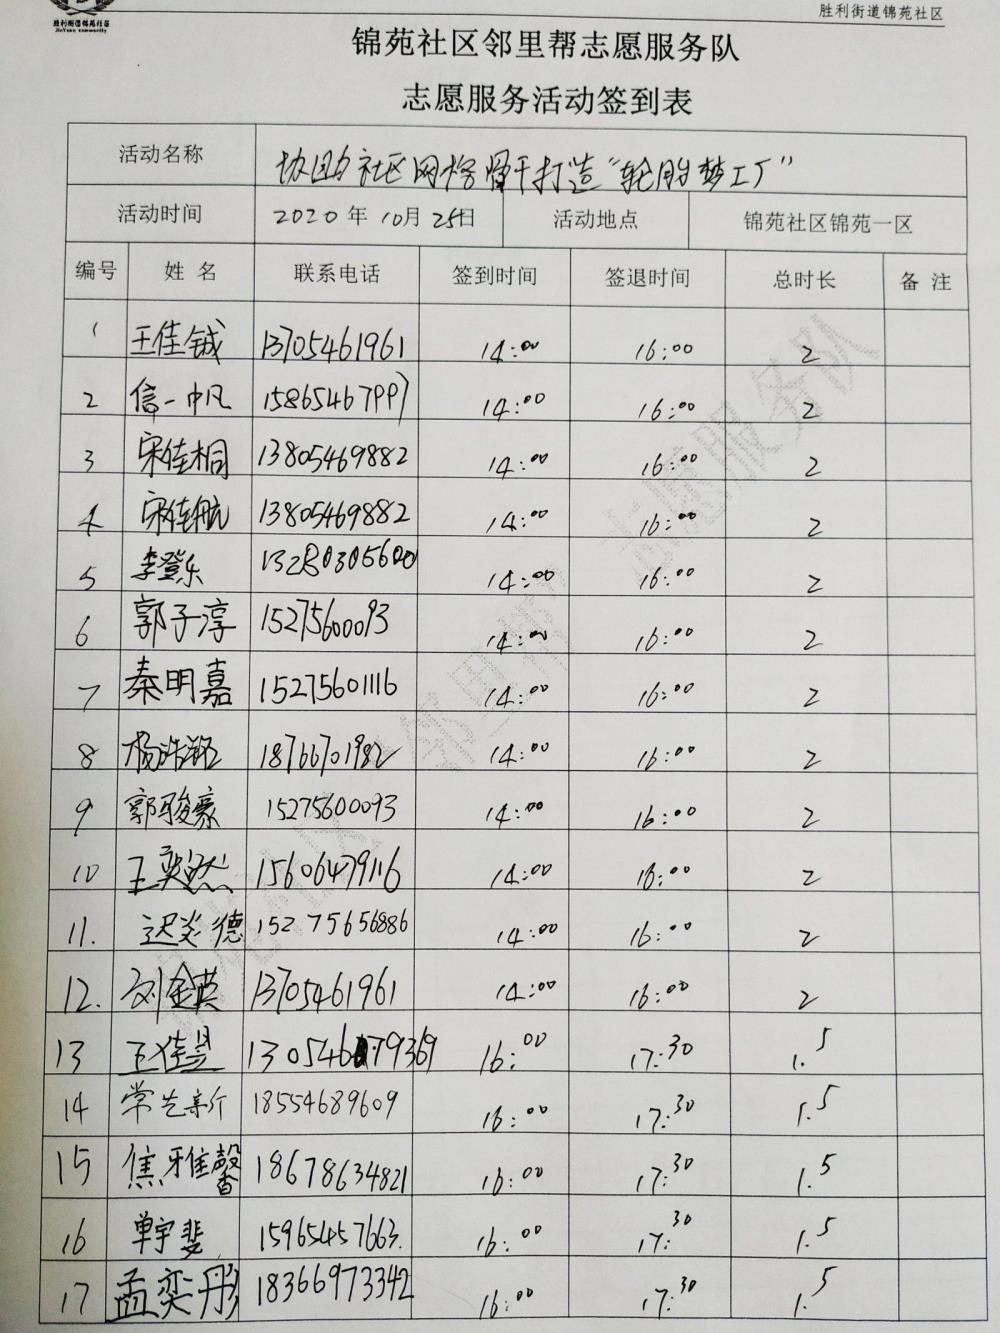 胜利街道锦苑社区
胜利街道锦苑社区
锦苑社区邻里帮志愿服务队
志愿服务活动签到表
活动名称 协助社区网格骨干打造“轮胎梦工厂”
活动时间 2020年10月25日 活动地点 锦苑社区锦苑一区
编号 姓名 联系电话 签到时间 签退时间 总时长 备注
1 王佳铖 13705461961 14:00 16:00 2
2 信一中凡 14:00 16:00 2
3 宋佳桐 13805469882 14:00 16:00 2
4 宋佳航 13805469882 14:00 16:00 2
5 李登乐 13280305600 14:00 16:00 2
6 郭子淳 15275600093 14:00 16:00 2
7 秦明嘉 15275601116 14:00 16:00 2
8 杨浩铭 18766701982 14:00 16:00 2
9 郭骏豪 15275600093 14:00 16:00 2
10 王奕然 15606479116 14:00 16:00 2
11. 迟炎德 15275656886 14:00 16:00 2
12. 刘金英 13705461961 14:00 16:00 2
13 王佳昱 16:00 17:30 1.5
14 常艺新 18554689609 16:00 17:30 1.5
15 焦雅馨 18678634821 16:00 17:30 1.5
16 单宇斐 15965457663 16:00 17:30 1.5
17 孟奕彤 18366973342 16:00 17:30 1.5
锦苑社区邻里帮志愿服务队